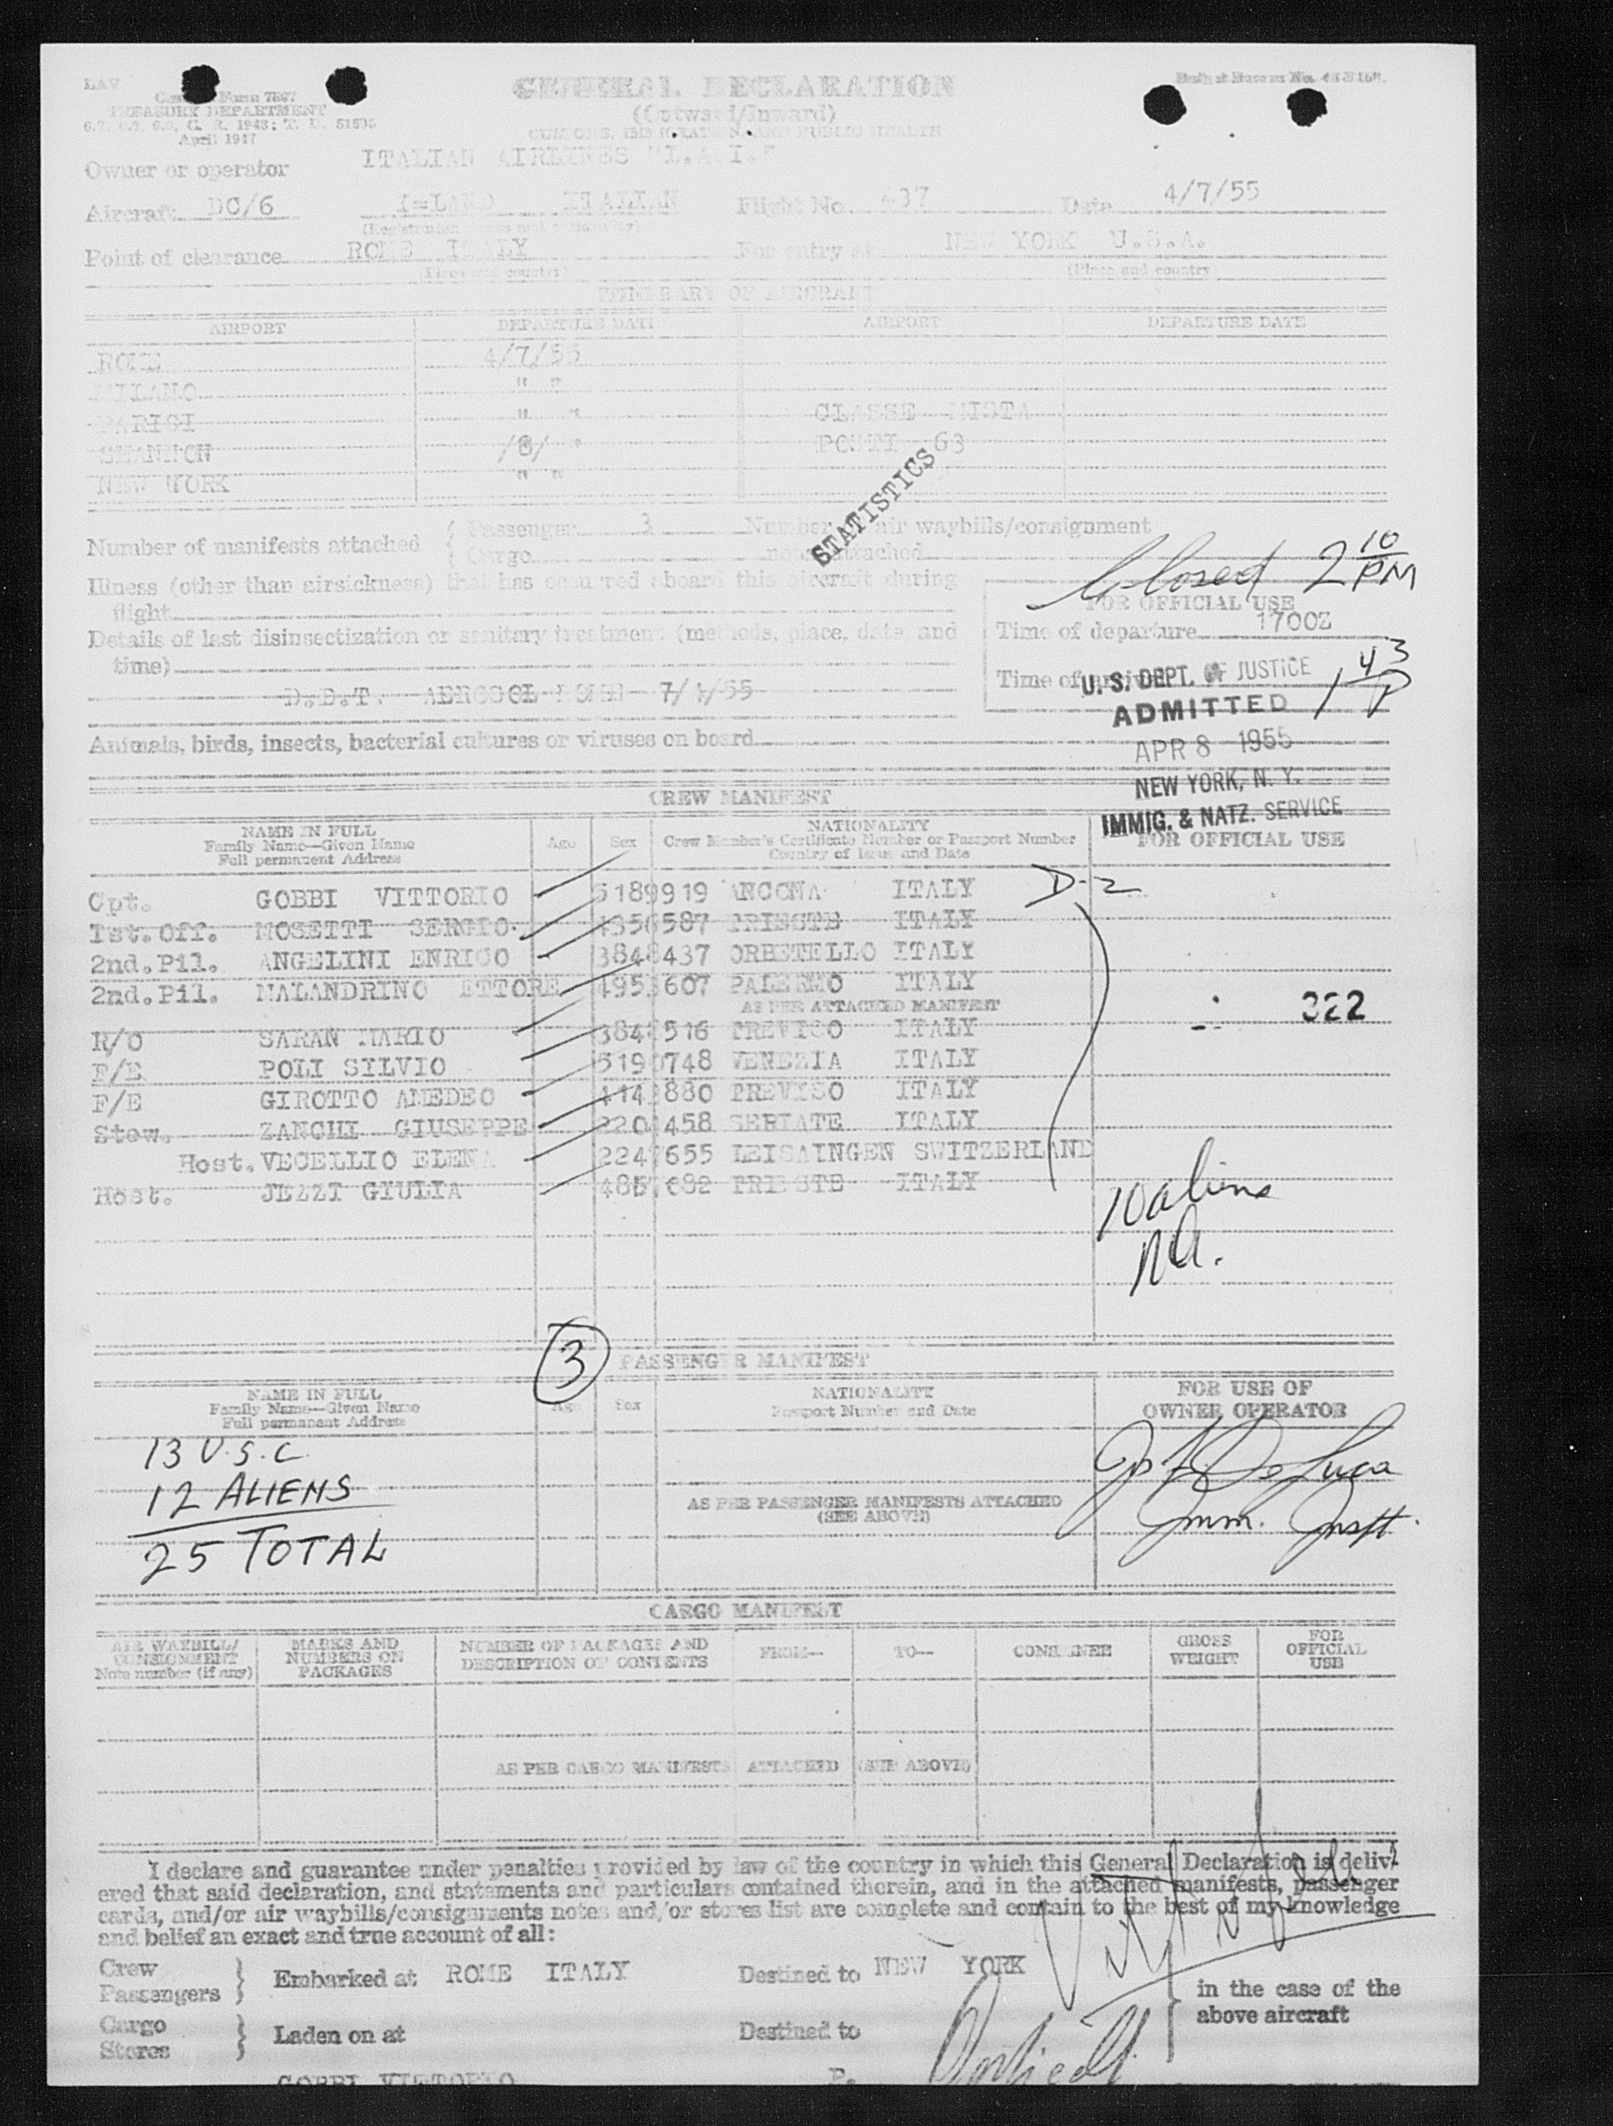 LAV
Customs Form 7507
TREASURY DEPARTMENT
April 1947
GENERAL DECLARATION
(Outward/Inward)
CUSTOMS, IMMIGRATION, AND PUBLIC HEALTH
Owner or operator ITALIAN AIRLINES "L.A.I."
Aircraft DC/6 ITALIAN Flight No. 437 Date 4/7/55
(Registration marks and nationality)
Point of clearance ROME ITALY For entry at NEW YORK U.S.A.
(Place and country) (Place and country
ITINERARY OF AIRCRAFT
AIRPORT DEPARTURE DATE AIRPORT DEPARTURE DATE
ROME 4/7/55
MILANO " "
PARIGI " " CLASSE MISTA
SHANNON /8/ " POSTI 63
NEW YORK " "
STATISTICS
Number of manifests attached { Passenger 3 Number air waybills/consignment
{ Cargo notes attached
Closed 2 10 PM
Illness (other than airsickness) that has occurred aboard this aircraft during
flight
FOR OFFICIAL USE
Details of last disinsectization or sanitary treatment (methods, place, date and
time)
Time of departure 1700Z
Time of arrival 1 43 P
D.D.T. AEROSOL ROME 7/4/55
U. S. DEPT. OF JUSTICE
ADMITTED
APR 8 1955
NEW YORK, N. Y.
IMMIG. & NATZ. SERVICE
Animals, birds, insects, bacterial cultures or viruses on board
CREW MANIFEST
NAME IN FULL
Family Name—Given Name
Full permanent Address
Age Sex
NATIONALITY
Crew Member's Certificate Number or Passport Number
Country of Issue and Date
FOR OFFICIAL USE
Cpt. GOBBI VITTORIO 5189919 ANCONA ITALY D-2
1st.Off. MOSETTI SERGIO 4356587 TRIESTE ITALY
2nd.Pil. ANGELINI ENRICO 3848437 ORBETELLO ITALY
2nd.Pil. MALANDRINO ETTORE 607 PALERMO ITALY
AS PER ATTACHED MANIFEST
322
R/O SARAN MARIO 516 TREVISO ITALY
F/E POLI SILVIO 748 VENEZIA ITALY
F/E GIROTTO AMEDEO 880 TREVISO ITALY
Stew. ZANCHI GIUSEPPE 458 SERIATE ITALY
Host. VECELLIO ELENA 655 LEISAINGEN SWITZERLAND
Host. JEZZI GIULIA 682 TRIESTE ITALY
10 aliens
NA.
3
PASSENGER MANIFEST
NAME IN FULL
Family Name—Given Name
Full permanent Address
Age Sex
NATIONALITY
Passport Number and Date
FOR USE OF
OWNER OPERATOR
13 U.S.C.
12 ALIENS
25 TOTAL
AS PER PASSENGER MANIFESTS ATTACHED
(SEE ABOVE)
Jos De Luca
Imm. Inspt.
CARGO MANIFEST
AIR WAYBILL/
CONSIGNMENT
Note number (if any)
MARKS AND
NUMBERS ON
PACKAGES
NUMBER OF PACKAGES AND
DESCRIPTION OF CONTENTS
FROM— TO— CONSIGNEE
GROSS
WEIGHT
FOR
OFFICIAL
USE
AS PER CARGO MANIFESTS ATTACHED (SEE ABOVE)
I declare and guarantee under penalties provided by law of the country in which this General Declaration is deliv-
ered that said declaration, and statements and particulars contained therein, and in the attached manifests, passenger
cards, and/or air waybills/consignments notes and/or stores list are complete and contain to the best of my knowledge
and belief an exact and true account of all:
Crew
Passengers } Embarked at ROME ITALY Destined to NEW YORK
in the case of the
above aircraft
Cargo
Stores } Laden on at Destined to
GOBBI VITTORIO